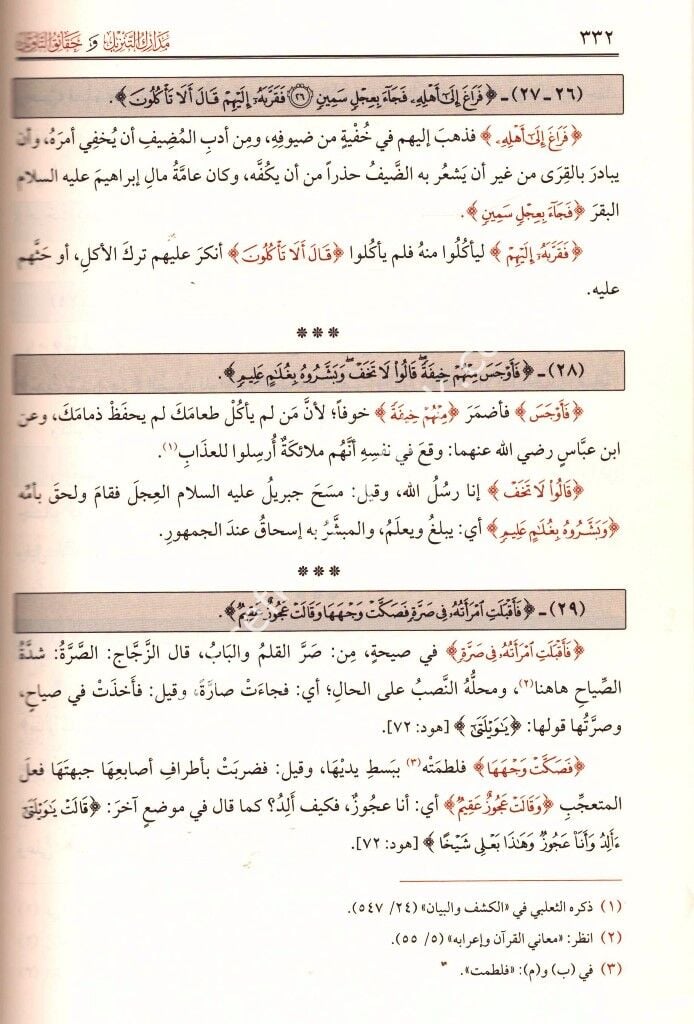 ٣٣٢
مدارك التنزيل و حقائق التأويل
(٢٦ - ٢٧) - ﴿فَرَاغَ إِلَىٰٓ أَهْلِهِۦ فَجَآءَ بِعِجْلٍ سَمِينٍ ۝٢٦ فَقَرَّبَهُۥٓ إِلَيْهِمْ قَالَ أَلَا تَأْكُلُونَ﴾.
﴿فَرَاغَ إِلَىٰٓ أَهْلِهِۦ﴾ فذهبَ إليهم في خُفْيةٍ من ضيوفِهِ، ومِن أدبِ المُضِيفِ أن يُخفِي أمرَهُ، وأن
يبادرَ بالقِرَى من غير أن يَشعُر به الضَّيفُ حذراً من أن يكُفَّه، وكان عامَّةُ مالِ إبراهيمَ عليه السلام
البقرَ ﴿فَجَآءَ بِعِجْلٍ سَمِينٍ﴾.
﴿فَقَرَّبَهُۥٓ إِلَيْهِمْ﴾ ليأكُلُوا منهُ فلم يأكلوا ﴿قَالَ أَلَا تَأْكُلُونَ﴾ أنكرَ عليهم تركَ الأكلِ، أو حَثَّهم
عليه.
***
(٢٨) - ﴿فَأَوْجَسَ مِنْهُمْ خِيفَةً ۖ قَالُوا۟ لَا تَخَفْ ۖ وَبَشَّرُوهُ بِغُلَـٰمٍ عَلِيمٍ﴾.
﴿فَأَوْجَسَ﴾ فأضمَرَ ﴿مِنْهُمْ خِيفَةً﴾ خوفاً؛ لأنَّ مَن لم يأكُلْ طعامَكَ لم يحفَظْ ذمامَكَ، وعن
ابن عبَّاسٍ رضي الله عنهما: وقعَ في نفسِهِ أنَّهُم ملائكةٌ أُرسِلوا للعذَابِ(١).
﴿قَالُوا۟ لَا تَخَفْ﴾ إنا رسُلُ الله، وقيل: مسَحَ جبريلُ عليه السلام العِجلَ فقامَ ولَحقَ بأمِّه
﴿وَبَشَّرُوهُ بِغُلَـٰمٍ عَلِيمٍ﴾ أي: يبلغُ ويعلَمُ، والمبشَّرُ به إسحاقُ عندَ الجمهورِ.
***
(٢٩) - ﴿فَأَقْبَلَتِ ٱمْرَأَتُهُۥ فِى صَرَّةٍ فَصَكَّتْ وَجْهَهَا وَقَالَتْ عَجُوزٌ عَقِيمٌ﴾.
﴿فَأَقْبَلَتِ ٱمْرَأَتُهُۥ فِى صَرَّةٍ﴾ في صيحةٍ، مِن: صَرَّ القلمُ والبَابُ، قال الزَّجاج: الصَّرَّةُ: شدَّةُ
الصِّياحِ هاهنا(٢)، ومحلُّهُ النَّصبُ على الحالِ؛ أي: فجاءَتْ صارَّةً، وقيل: فأخَذَتْ في صياحٍ،
وصرَّتُها قولها: ﴿يَـٰوَيْلَتَىٰٓ﴾ [هود: ٧٢].
﴿فَصَكَّتْ وَجْهَهَا﴾ فلطمَتْه(٣) ببَسطِ يديْهَا، وقيل: فضربَتْ بأطرافِ أصابعِهَا جبهتَهَا فعلَ
المتعجِّبِ ﴿وَقَالَتْ عَجُوزٌ عَقِيمٌ﴾ أي: أنا عجوزٌ، فكيف أَلِدُ؟ كما قال في موضعٍ آخرَ: ﴿قَالَتْ يَـٰوَيْلَتَىٰٓ
ءَأَلِدُ وَأَنَا۠ عَجُوزٌ وَهَـٰذَا بَعْلِى شَيْخًا﴾ [هود: ٧٢].
(١) ذكره الثعلبي في «الكشف والبيان» (٢٤/ ٥٤٧).
(٢) انظر: «معاني القرآن وإعرابه» (٥/ ٥٥).
(٣) في (ب) و(م): «فلطمت».